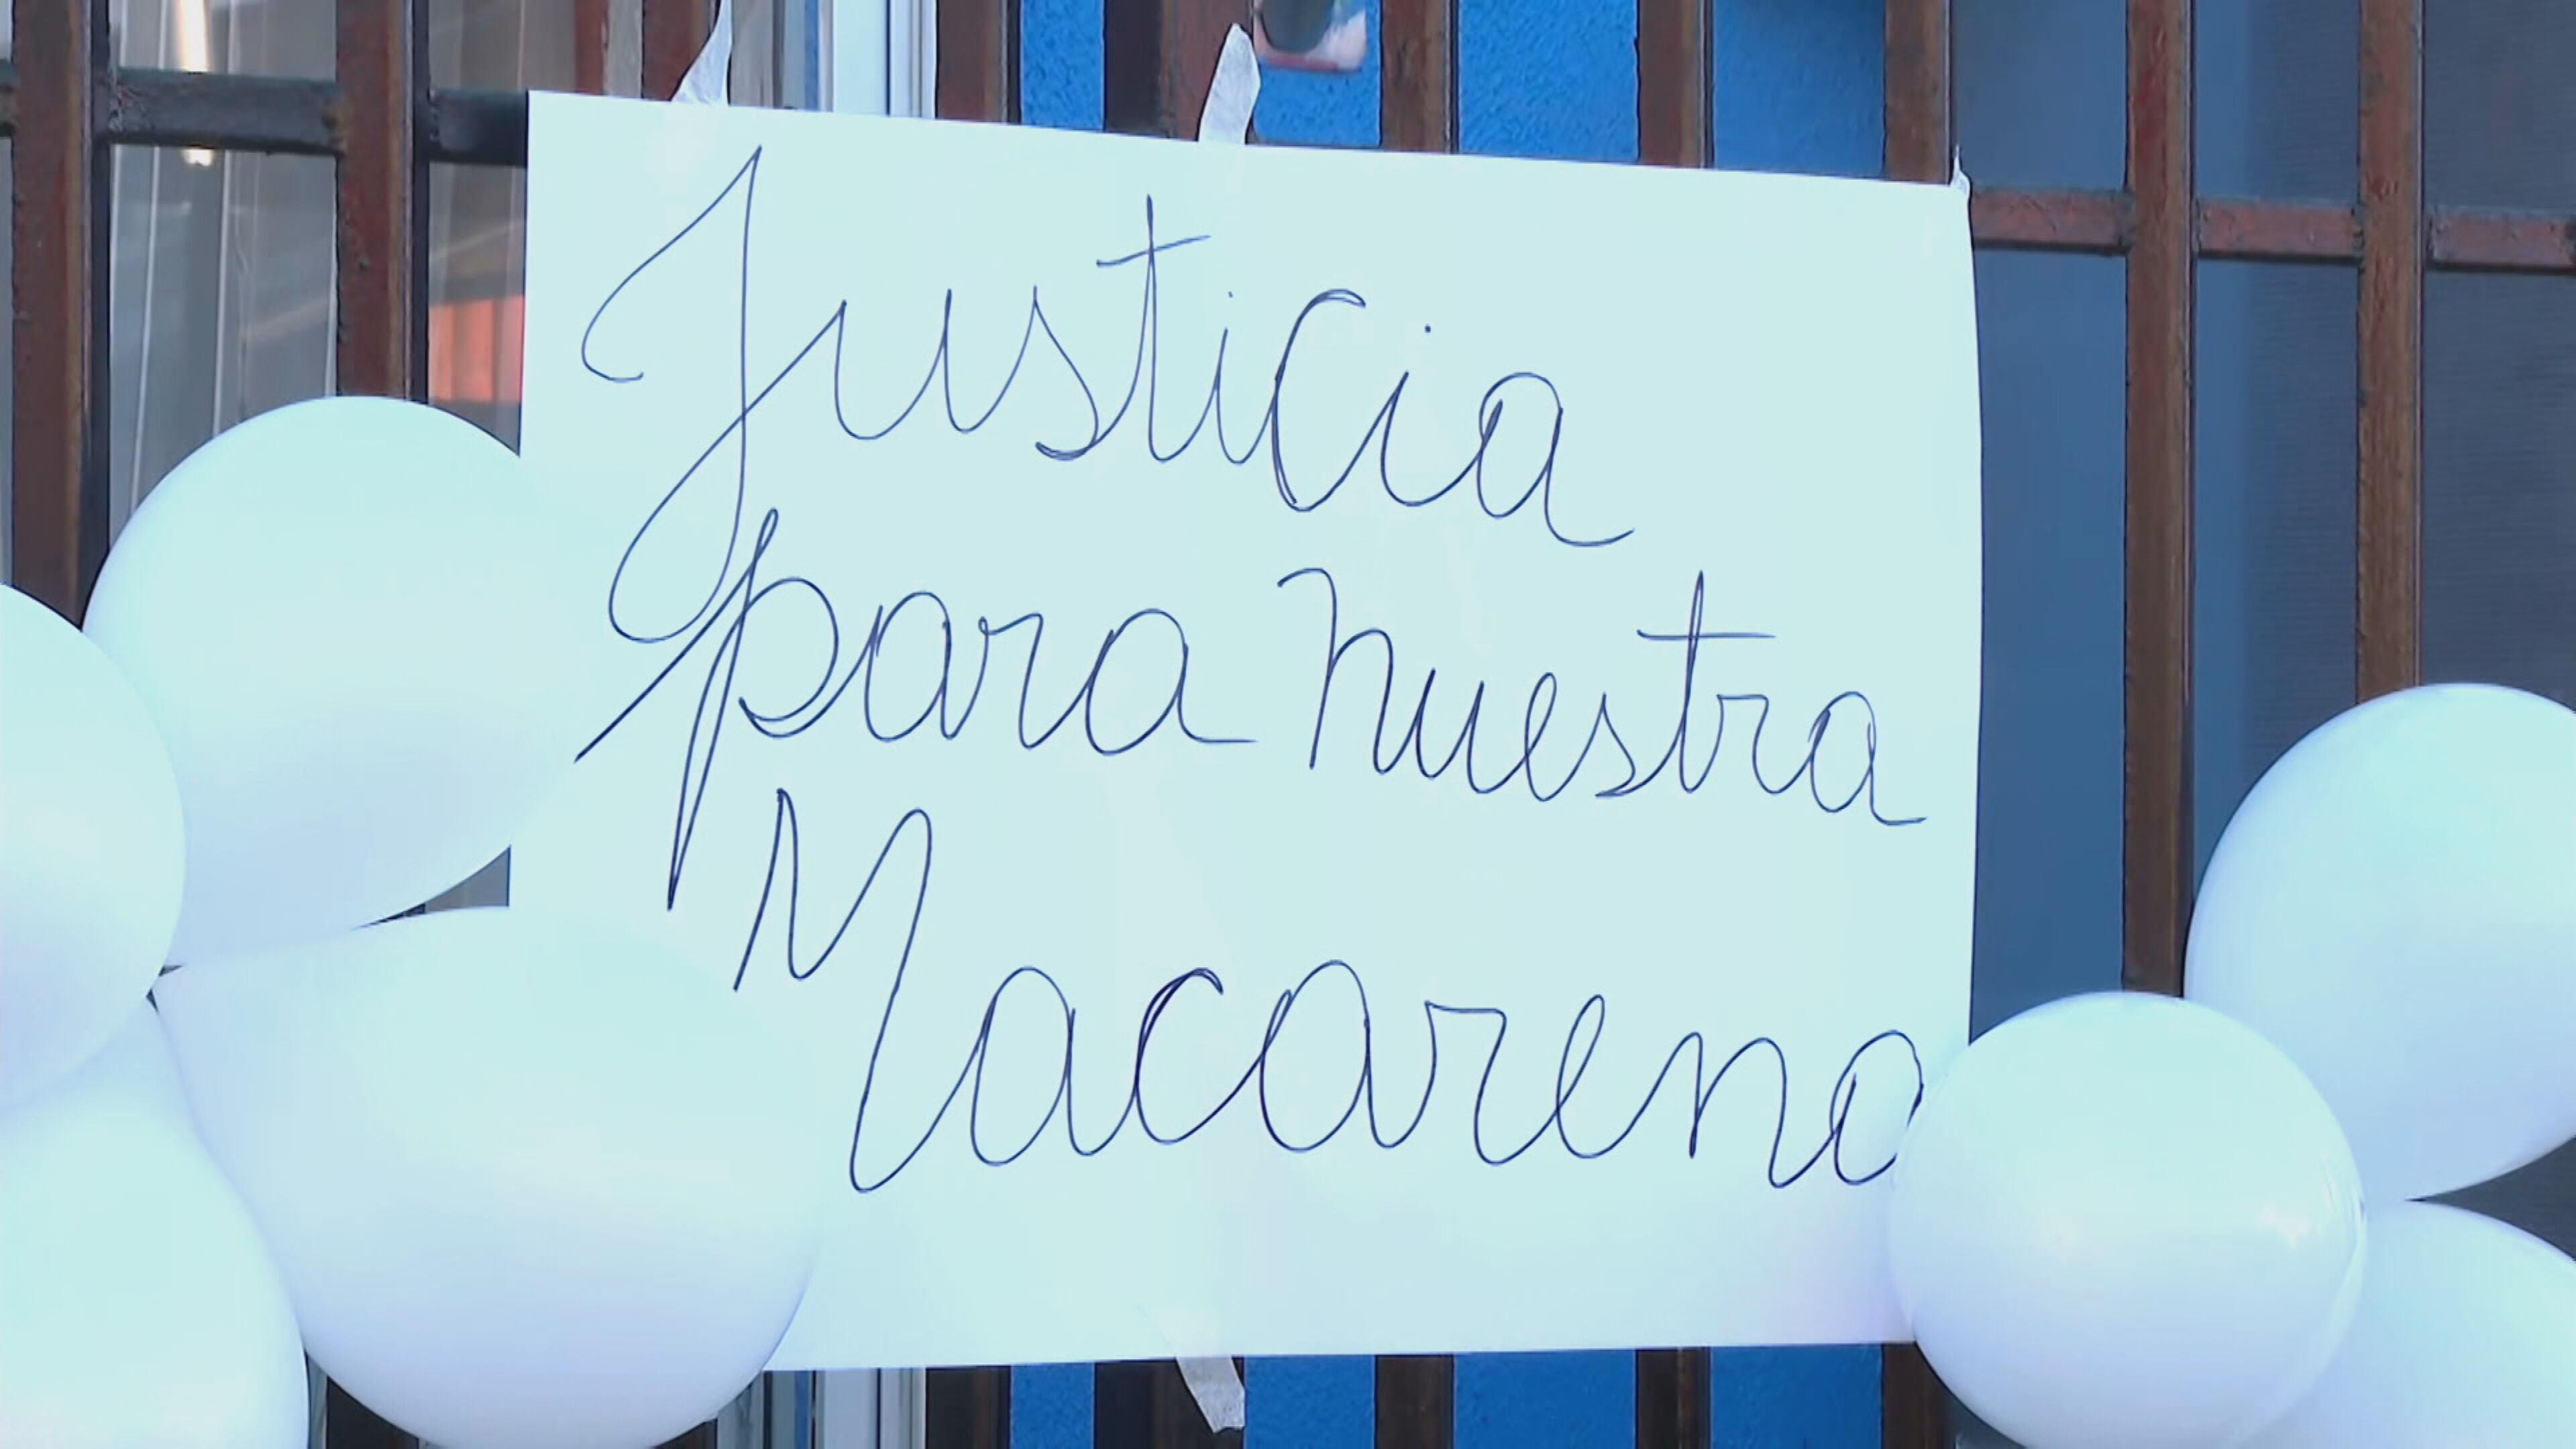 Justicia
para nuestra
Macarena